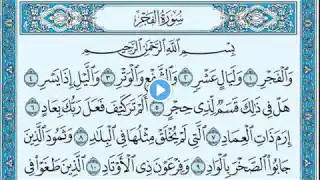 سُورَةُ الْفَجْرِ
بِسْمِ اللَّهِ الرَّحْمَٰنِ الرَّحِيمِ
وَالْفَجْرِ ١ وَلَيَالٍ عَشْرٍ ٢ وَالشَّفْعِ وَالْوَتْرِ ٣ وَاللَّيْلِ إِذَا يَسْرِ ٤
هَلْ فِي ذَٰلِكَ قَسَمٌ لِّذِي حِجْرٍ ٥ أَلَمْ تَرَ كَيْفَ فَعَلَ رَبُّكَ بِعَادٍ ٦
إِرَمَ ذَاتِ الْعِمَادِ ٧ الَّتِي لَمْ يُخْلَقْ مِثْلُهَا فِي الْبِلَادِ ٨ وَثَمُودَ الَّذِينَ
جَابُوا الصَّخْرَ بِالْوَادِ ٩ وَفِرْعَوْنَ ذِي الْأَوْتَادِ ١٠ الَّذِينَ طَغَوْا فِي